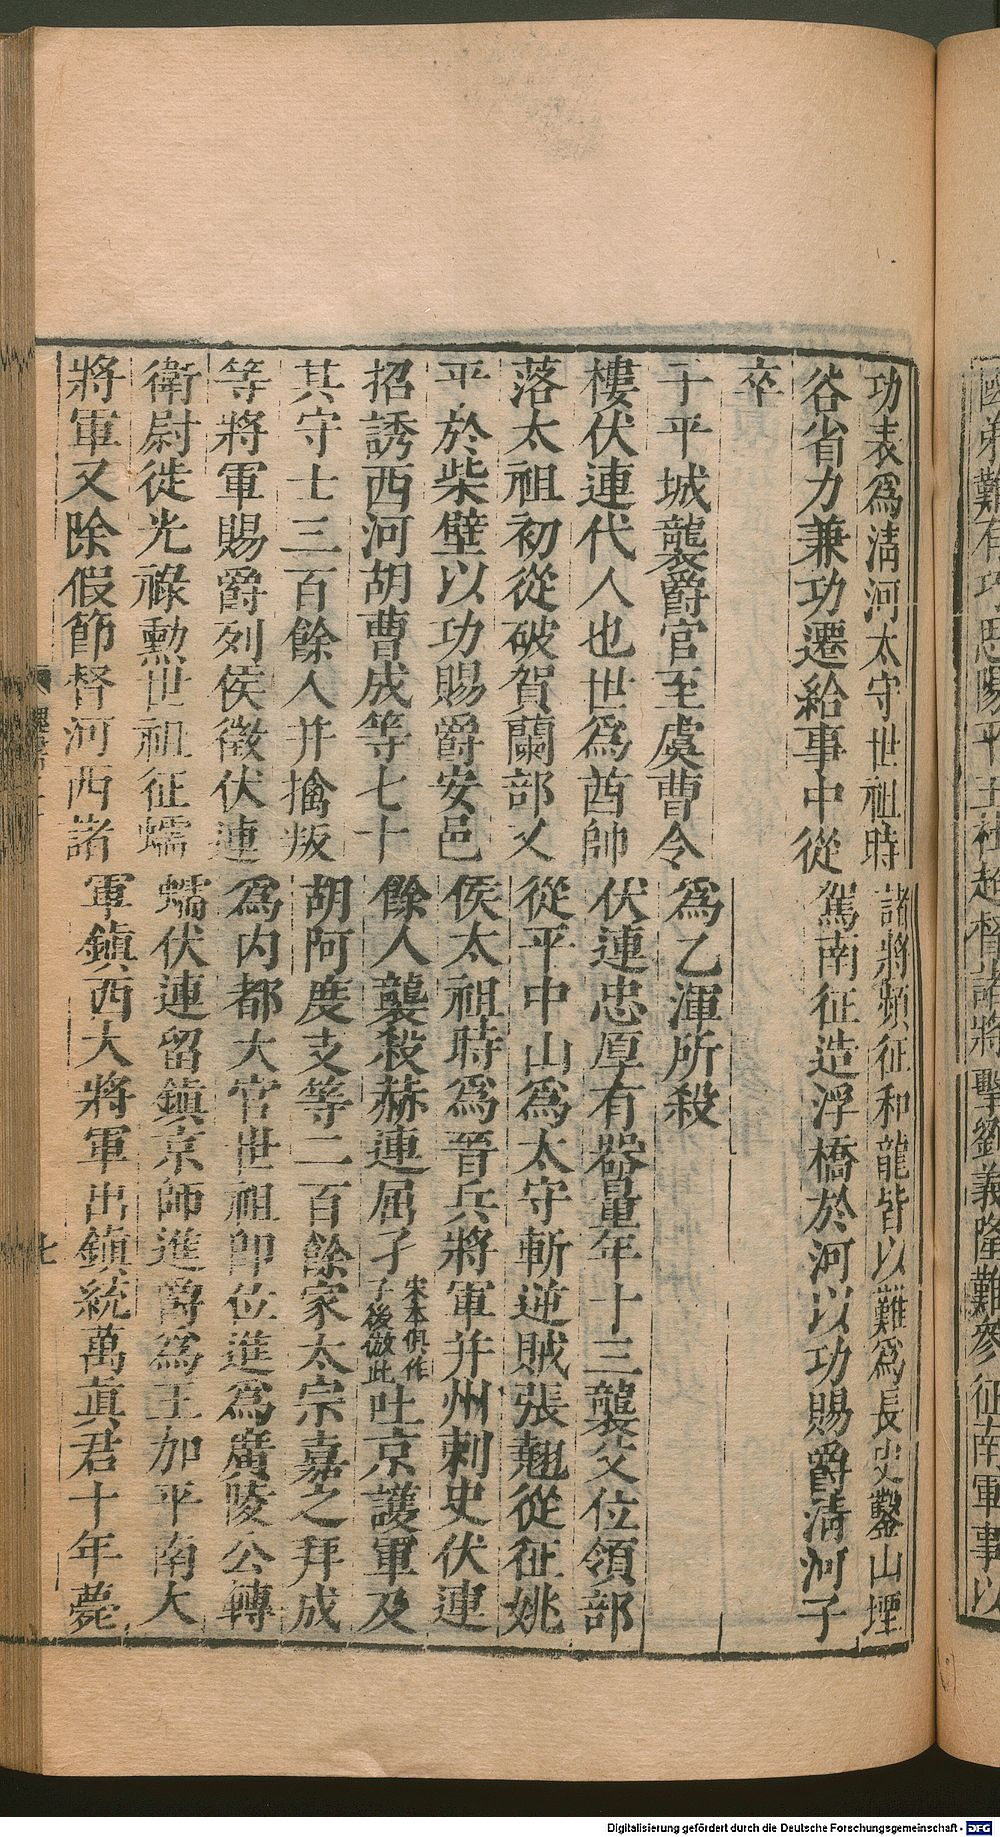 弟難有功
陽平王杜超督諸將擊劉義隆難參征南軍事以
功表爲淸河太守世祖時諸將頻征和龍皆以難爲長史鑿山堙
谷省力兼功遷給事中從駕南征造浮橋於河以功賜爵淸河子
卒
子平城襲爵官至虞曹令爲乙渾所殺
樓伏連代人也世爲酋帥伏連忠厚有器量年十三襲父位領部
落太祖初從破賀蘭部又從平中山爲太守斬逆賊張翹從征姚
平於柴壁以功賜爵安邑侯太祖時爲晉兵將軍并州刺史伏連
招誘西河胡曹成等七十餘人襲殺赫連屈孑宋本俱作子後倣此吐京護軍及
其守士三百餘人并擒叛胡阿度支等二百餘家太宗嘉之拜成
等將軍賜爵列侯徵伏連爲内都大官世祖卽位進爲廣陵公轉
衛尉徙光祿勳世祖征蠕蠕伏連留鎮京師進爵爲王加平南大
將軍又除假節督河西諸軍鎮西大將軍出鎮統萬眞君十年薨
七
Digitalisierung gefördert durch die Deutsche Forschungsgemeinschaft - DFG